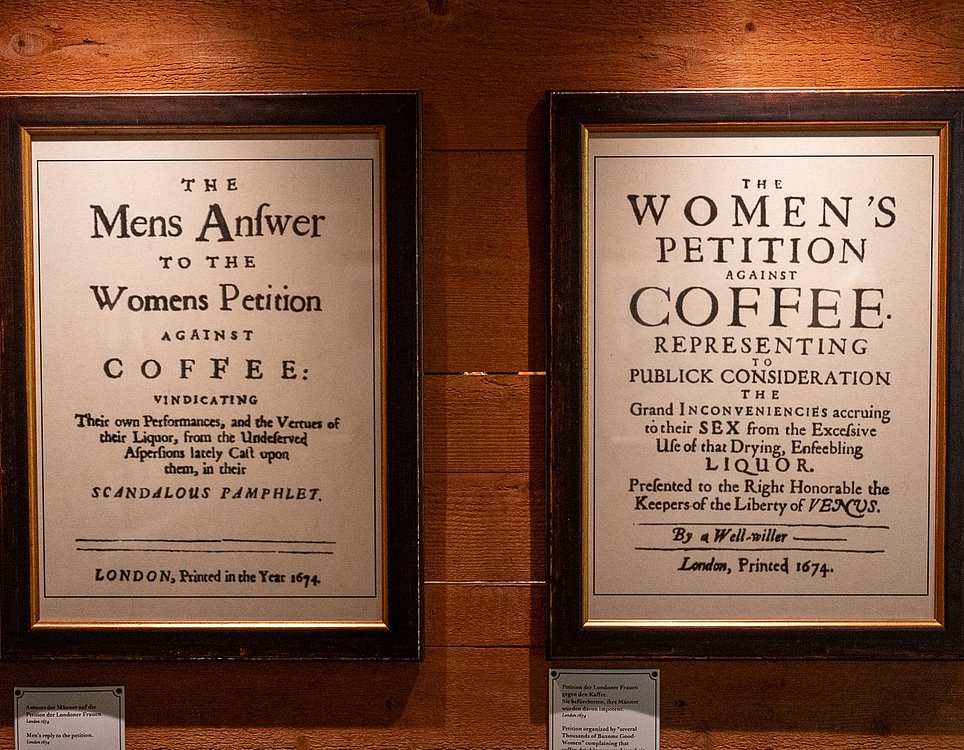 THE
Mens Anſwer
TO THE
Womens Petition
AGAINST
COFFEE:
VINDICATING
Their own Performances, and the Vertues of
their Liquor, from the Undeſerved
Aſperſions lately Caſt upon
them, in their
SCANDALOUS PAMPHLET.
LONDON, Printed in the Year 1674.
Antwort der Männer auf die
Petition der Londoner Frauen.
London 1674
Men's reply to the petition.
London 1674
THE
WOMEN'S
PETITION
AGAINST
COFFEE.
REPRESENTING
TO
PUBLICK CONSIDERATION
THE
Grand INCONVENIENCIES accruing
to their SEX from the Exceſsive
Uſe of that Drying, Enfeebling
LIQUOR.
Preſented to the Right Honorable the
Keepers of the Liberty of VENUS.
By a Well-willer
London, Printed 1674.
Petition der Londoner Frauen
gegen den Kaffee.
Sie befürchteten, ihre Männer
würden davon impotent.
London 1674
Petition organized by "several
Thousands of Buxome Good-
Women" complaining that